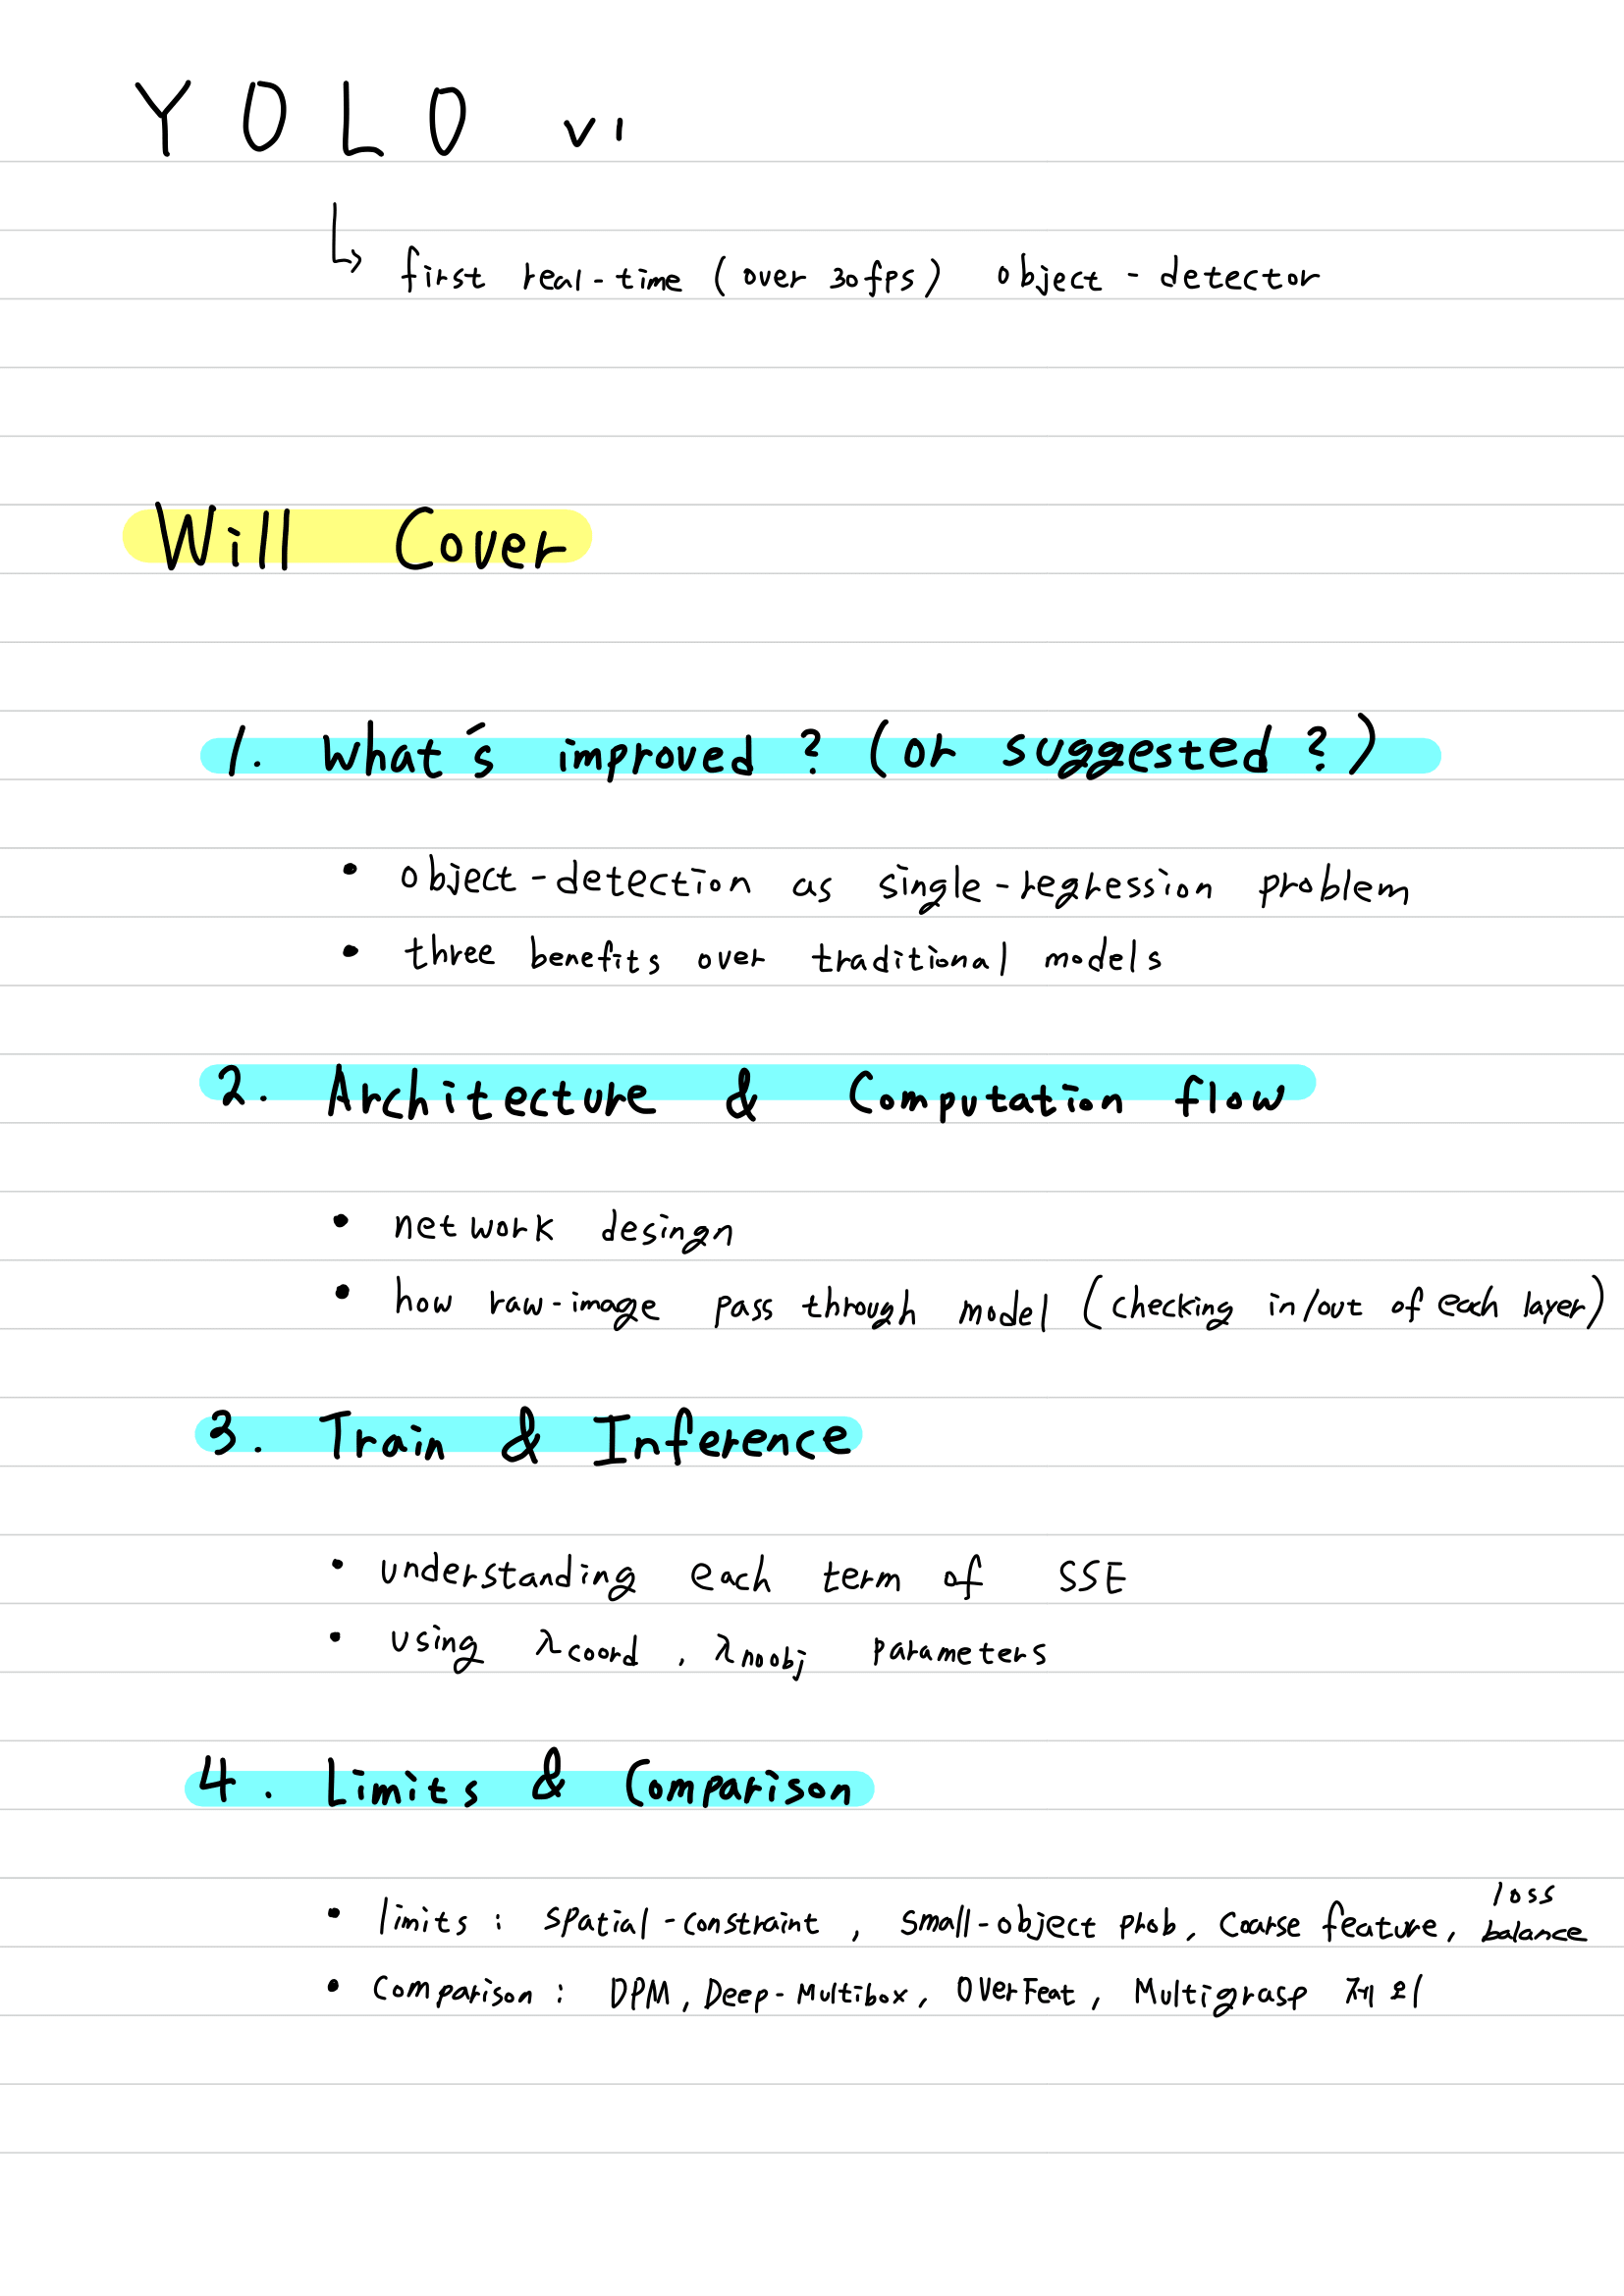 YOLO v1
↳ first real-time (over 30fps) object-detector
Will Cover
1. What's improved? (or suggested?)
• object-detection as single-regression problem
• three benefits over traditional models
2. Architecture & Computation flow
• network desingn
• how raw-image pass through model (checking in/out of each layer)
3. Train & Inference
• understanding each term of SSE
• using λcoord, λnoobj parameters
4. Limits & Comparison
• limits: spatial-constraint, small-object prob, coarse feature, loss balance
• Comparison: DPM, Deep-Multibox, OverFeat, Multigrasp 제외